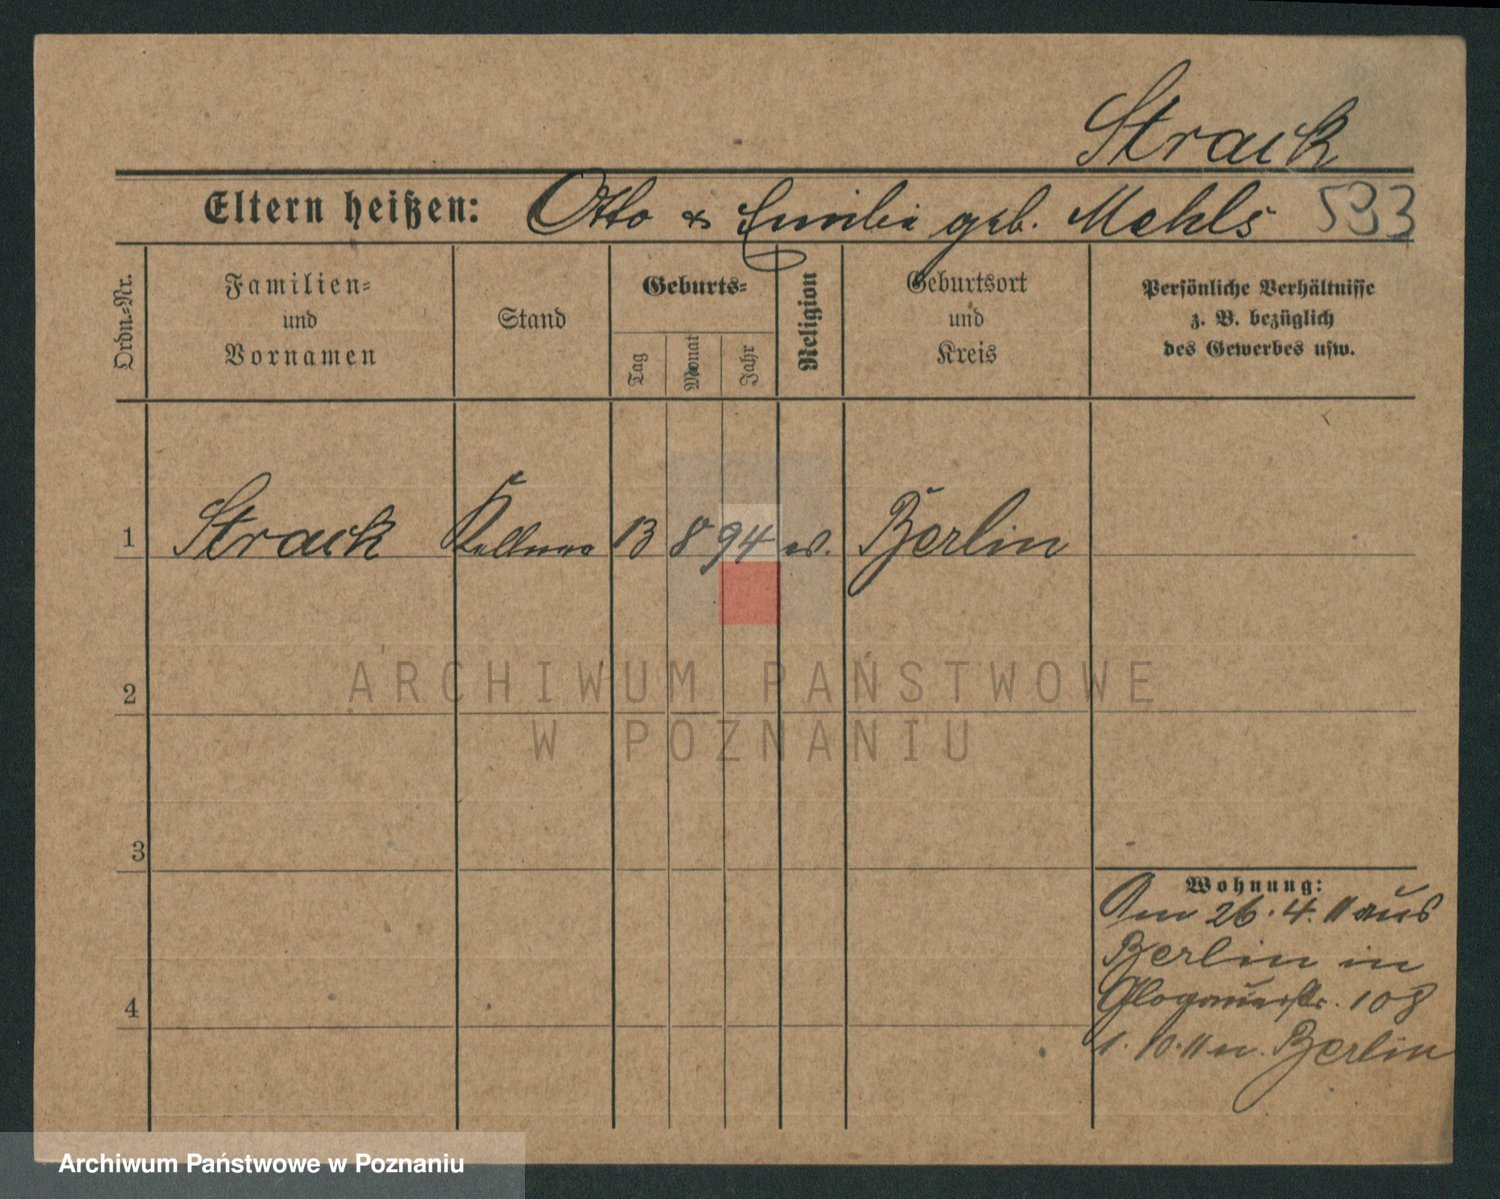 Strack
Eltern heißen: Otto & Emilie geb. Mehls 593
Ordn.-Nr.
Familien-
und
Vornamen
Stand
Geburts-
Tag
Monat
Jahr
Religion
Geburtsort
und
Kreis
Persönliche Verhältnisse
z. B. bezüglich
des Gewerbes usw.
1 Strack Kellner 13 8 94 ev. Berlin
2
ARCHIWUM PAŃSTWOWE
W POZNANIU
3
Wohnung:
Am 26.4.11 aus
Berlin in
Glogauerstr. 108
4
1.10.11 n. Berlin
Archiwum Państwowe w Poznaniu